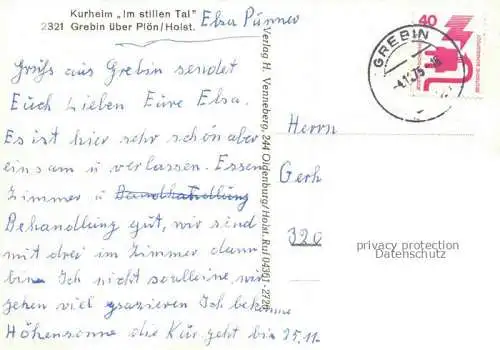 Kurheim „Im stillen Tal"
2321 Grebin über Plön/Holst.
Elsa Pünner
Gruß aus Grebin sendet
Euch Lieben Eure Elsa.
Es ist hier sehr schön aber
einsam u verlassen. Essen
Zimmer u
Behandlung gut, wir sind
mit drei im Zimmer dann
bin Ich nicht so alleine, wir
gehen viel spazieren Ich bekomme
Höhensonne die Kur geht bis 25.11.
Verlag H. Venneberg, 244 Oldenburg/Holst. Ruf 04361-2726
40
DEUTSCHE BUNDESPOST
GREBIN
-4.11.75-16
Herrn
Gerh
320
privacy protection
Datenschutz